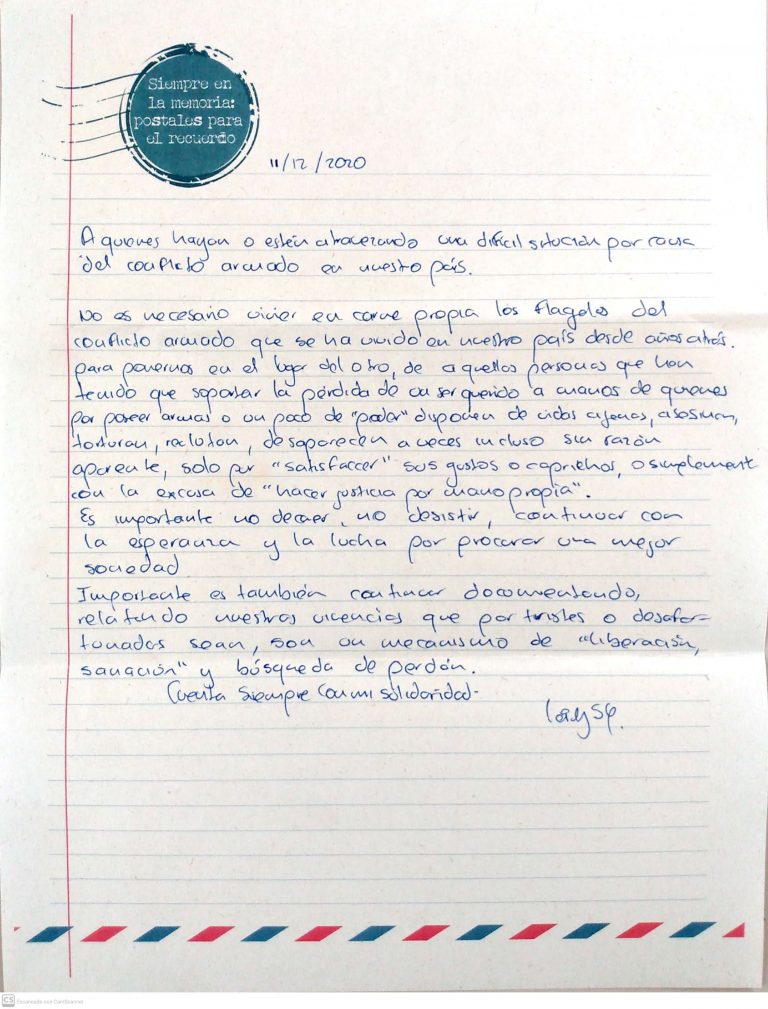 Siempre en
la memoria:
postales para
el recuerdo
11/12/2020
A quienes hayan o estén atravezando una difícil situción por causa
del conflicto armado en nuestro país.
No es necesario vivier en carne propia los flagelos del
conflicto armado que se ha vivido en nuestro país desde años atrás.
para ponernos en el lugar del otro, de aquellas personas que han
tenido que soportar la pérdida de un ser querido a manos de quienes
por poseer armas o un poco de "poder" disponen de vidas ajenas, asesinan,
torturan, reclutan, desaparecen a veces incluso sin razón
aparente, solo por "satisfaccer" sus gustos o caprichos, o simplemente
con la excusa de "hacer justicia por mano propia".
Es importante no decaer, no desistir, continuar con
la esperanza y la lucha por procurar una mejor
sociedad
Importante es también continuar documentando,
relatando nuestras vivencias que por tristes o desafor-
tunadas sean, son un mecanismo de "liberación,
sanación" y búsqueda de perdón.
Cuenta Siempre con mi solidaridad-
CS Escaneado con CamScanner